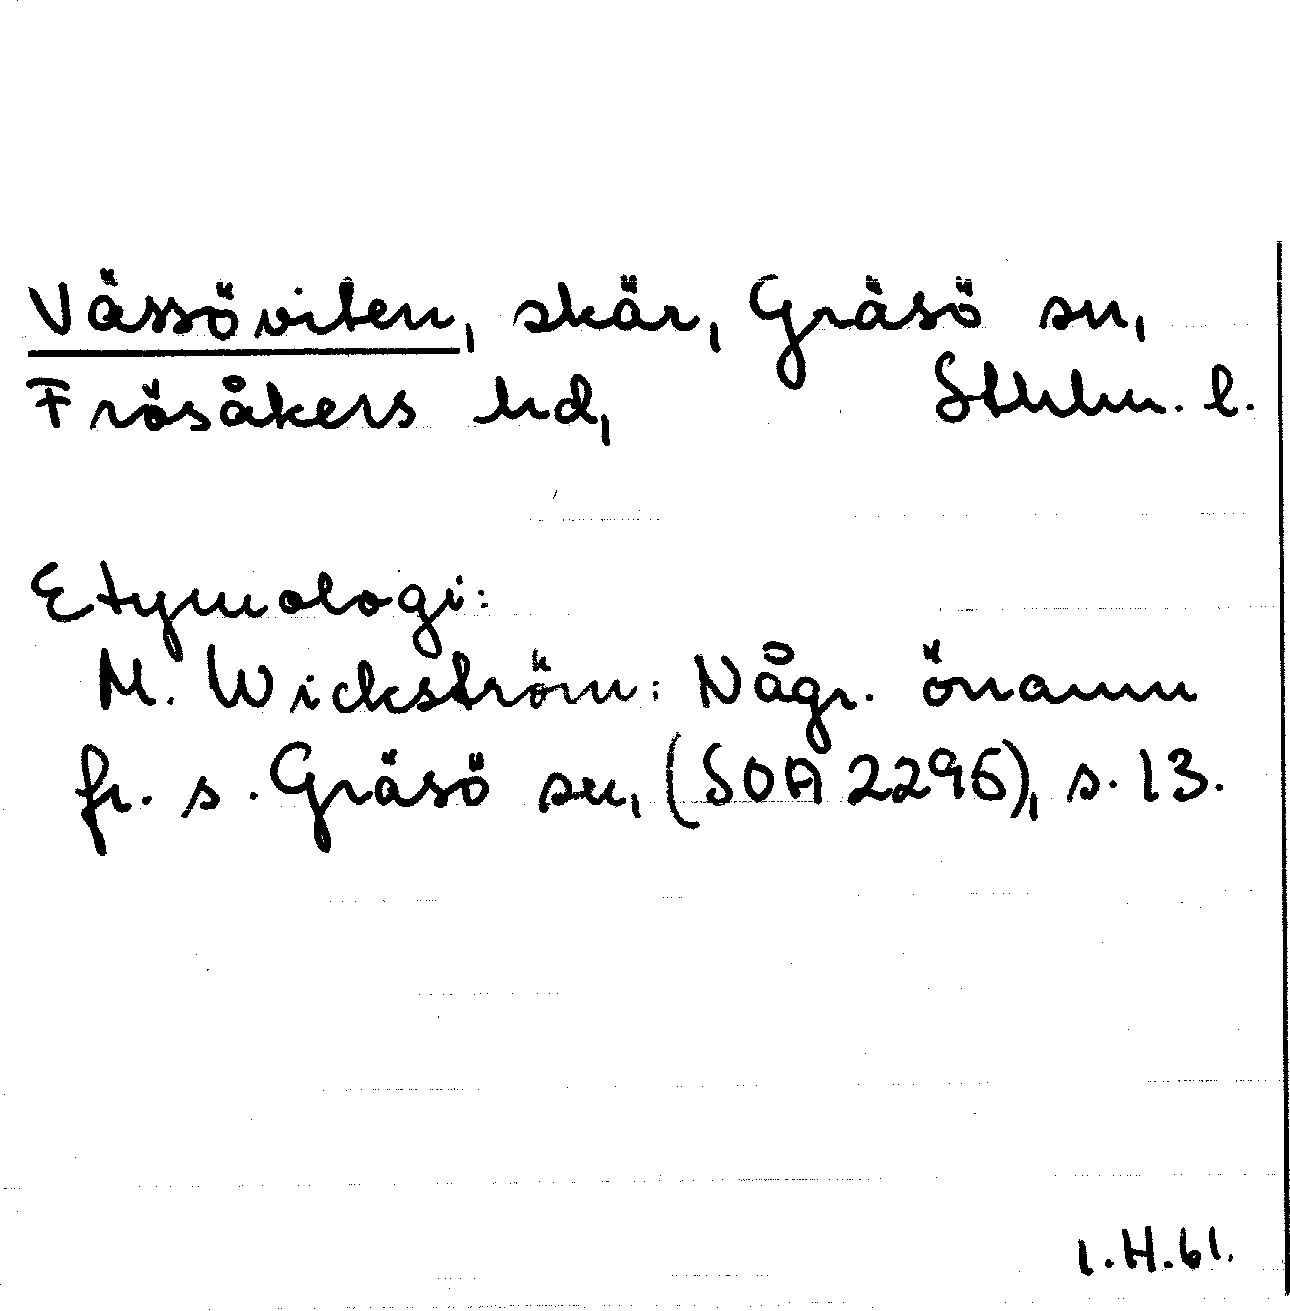 Vässöviten, skär, Gräsö sn,
Frösåkers hd, Sthlm. l.
Etymologi:
M. Wickström: Någr. önamn
fr. s. Gräsö sn, (SOA 2296), s. 13.
1.H.61.